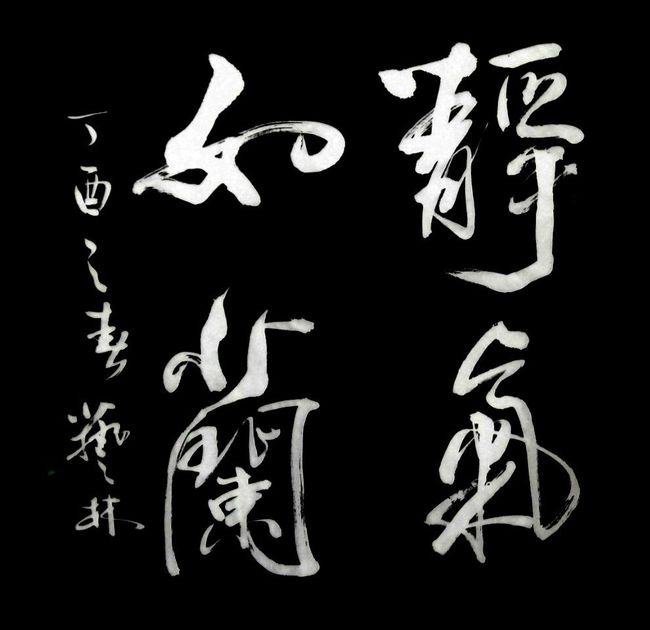 靜氣
如蘭
丁酉之春藝林